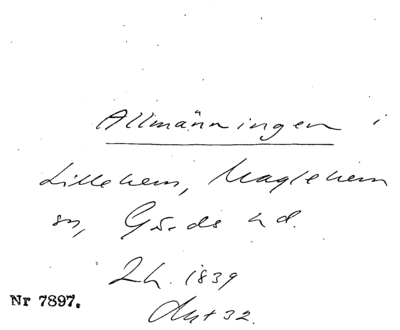 Allmänningen i
Lillehem, Maglehem
sn, Gärds hd.
Lh. 1839
Akt 32.
Nr 7897.